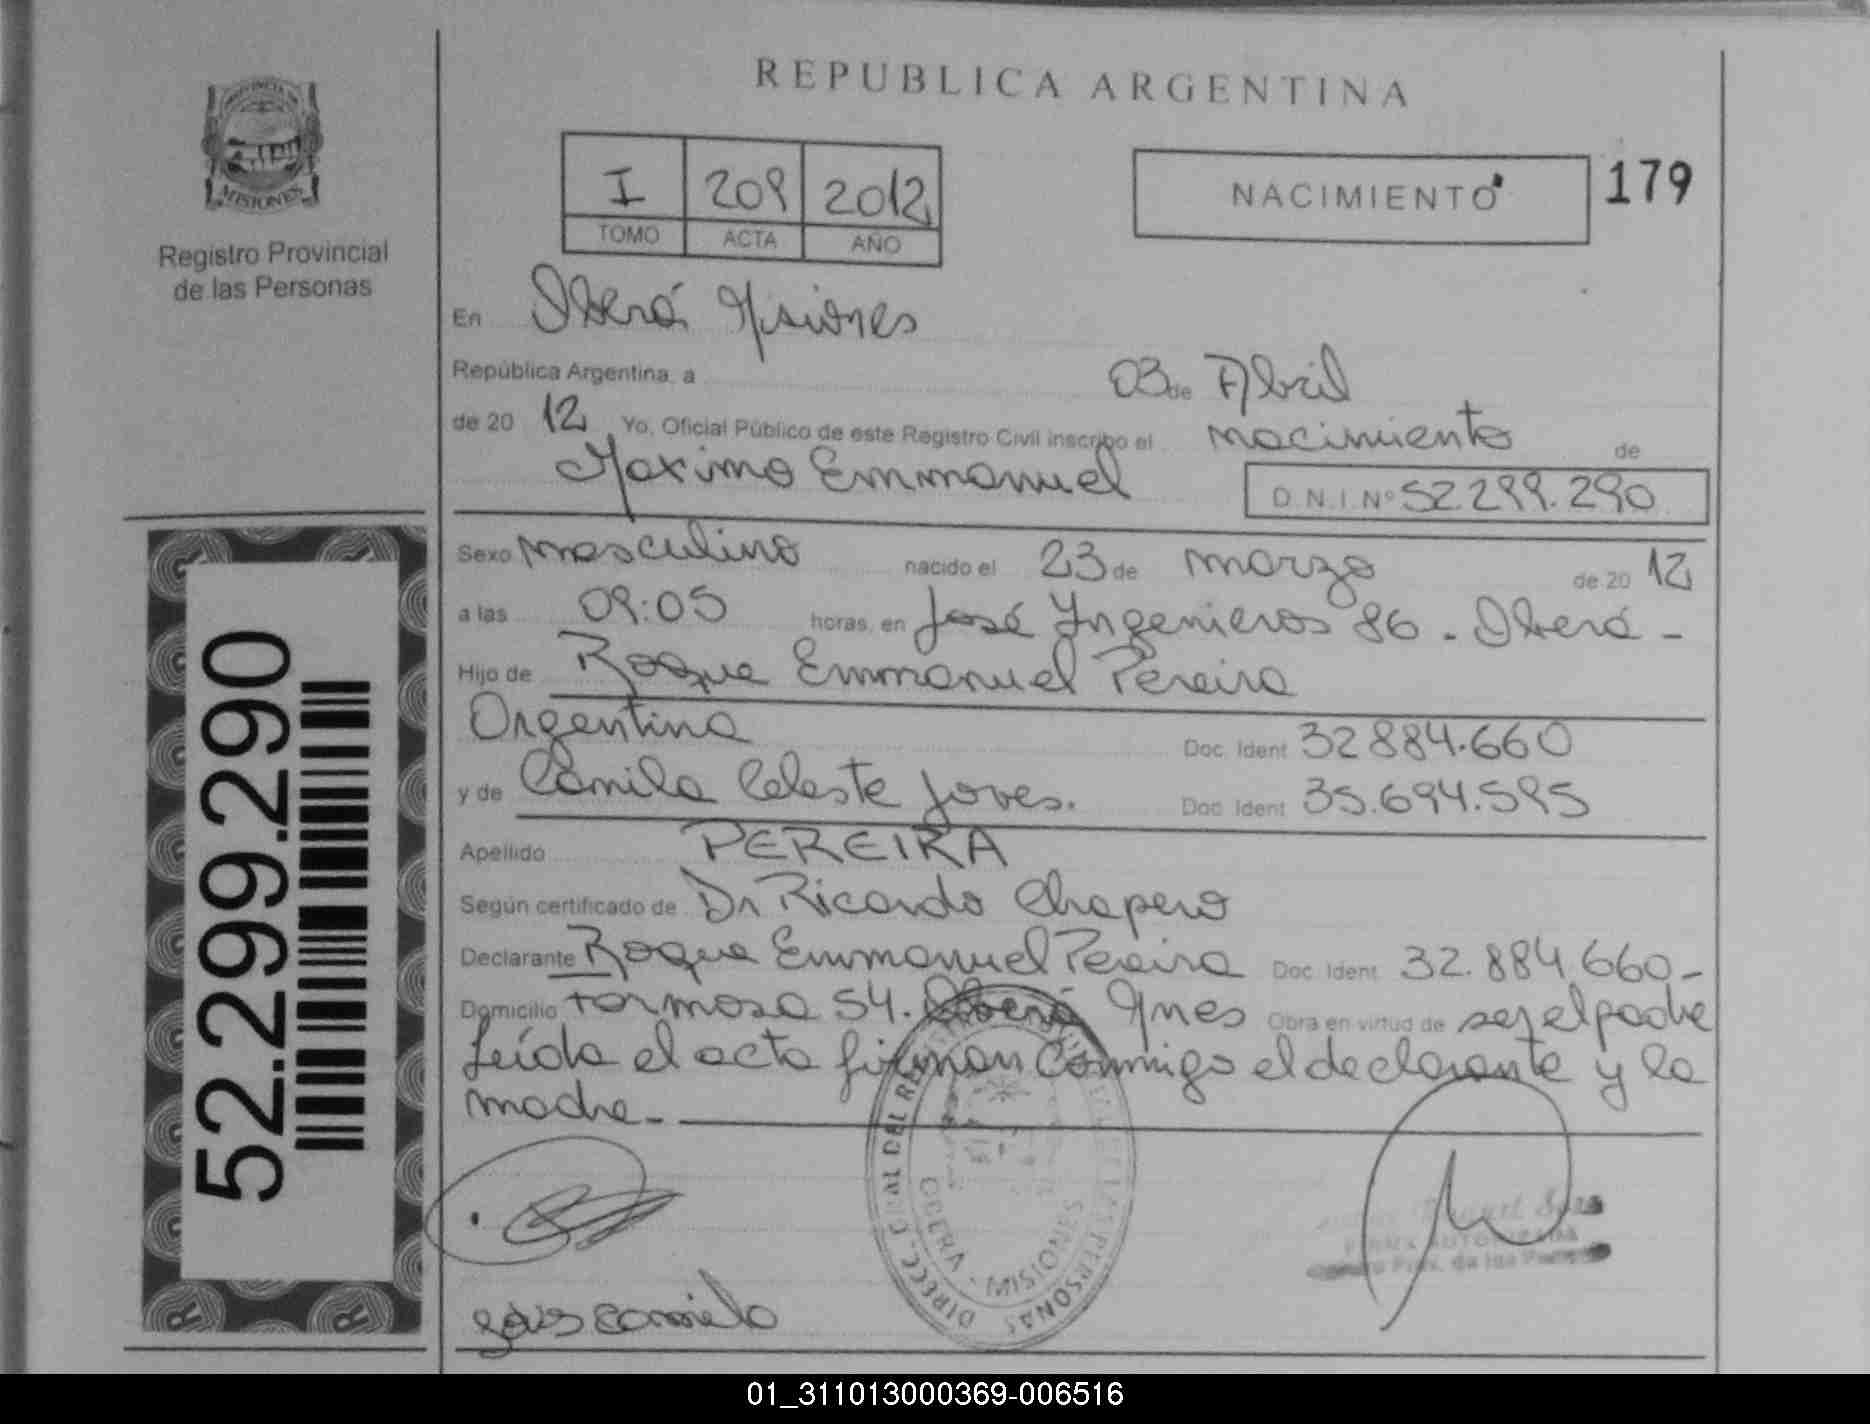 REPUBLICA ARGENTINA
PROVINCIA DE
MISIONES
Registro Provincial
de las Personas
I 209 2012
TOMO ACTA AÑO
NACIMIENTO 179
En Oberá Misiones
República Argentina, a 03 de Abril
de 20 12 Yo, Oficial Público de este Registro Civil inscribo el nacimiento de
Maximo Emmanuel D.N.I.Nº 52.299.290
Sexo masculino nacido el 23 de marzo de 20 12
a las 09:05 horas, en José Ingenieros 86 - Oberá -
Hijo de Roque Emmanuel Pereira
Argentina Doc. Ident 32884.660
y de Camila Celeste Joves. Doc. Ident 35.694.595
Apellido PEREIRA
Según certificado de Dr Ricardo Chapero
Declarante Roque Emmanuel Pereira Doc. Ident 32.884.660-
Domicilio Formosa 54. Oberá Mnes Obra en virtud de ser el padre
Leída el acta firman conmigo el declarante y la
madre-
52.299.290
DIRECC. GRAL DEL REGISTRO PERSONAS
OBERA - MISIONES
FIRMA AUTORIZADA
Prov. de las
Camila
01_311013000369-006516